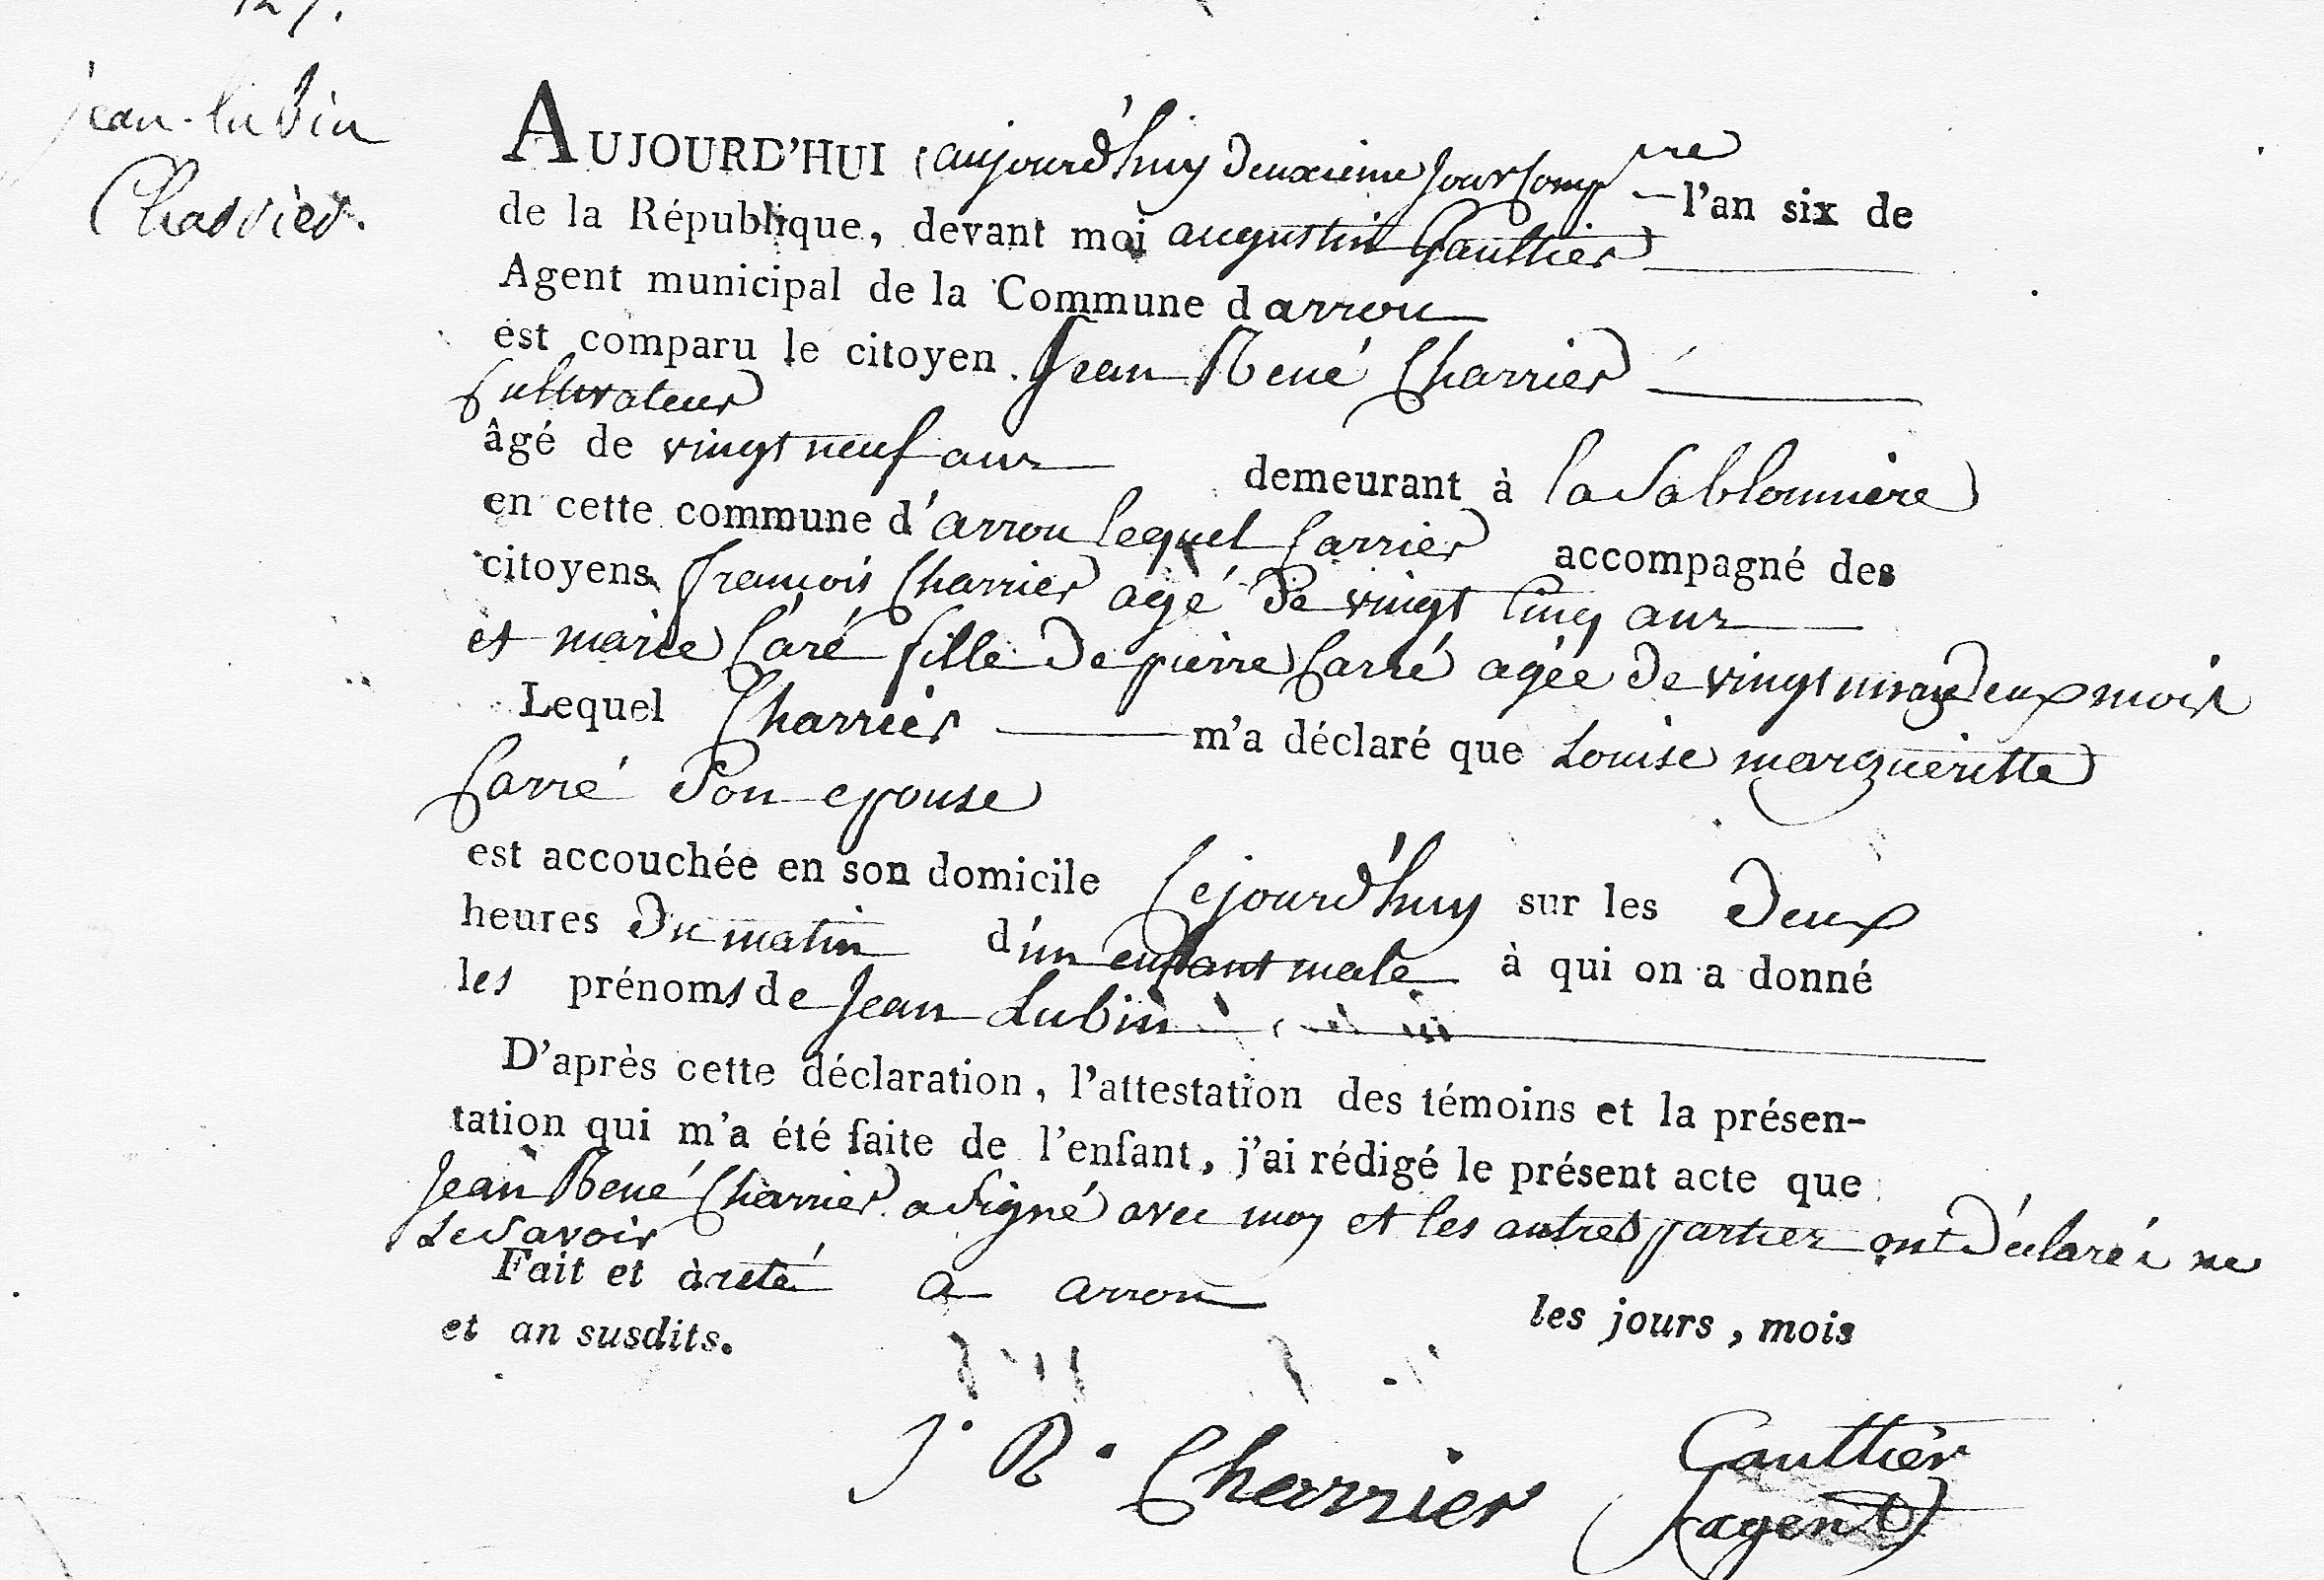 127.
jean-lubin
Charrier.
AUJOURD'HUI aujourd'huy deuxieme jour comp re l'an six de
de la République, devant moi augustin Gaultier
Agent municipal de la Commune d arrou
est comparu le citoyen Jean René Charrier
Cultivateur
âgé de vingt neuf ans demeurant à la Sablonniere
en cette commune d'arrou lequel Carrier accompagné des
citoyens francois Charrier agé de vingt cinq ans
et marie Caré fille de pierre Carré agée de vingt deux mois
Lequel Charrier m'a déclaré que Louise margueritte
Carré Son epouse
est accouchée en son domicile Cejourd'huy sur les deux
heures du matin d'un enfant male à qui on a donné
les prénoms de Jean Lubin
D'après cette déclaration, l'attestation des témoins et la présen-
tation qui m'a été faite de l'enfant, j'ai rédigé le présent acte que
Jean René Charrier a Signé avec moy et les autres parties ont déclaré ne
Le Savoir
Fait et àreté a arrou les jours, mois
et an susdits.
J. R. Charrier
Gaulttier
agent